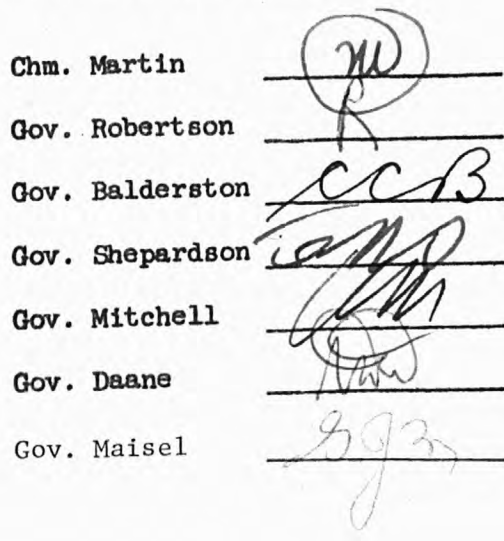 Chm. Martin
Gov. Robertson R
Gov. Balderston CCB
Gov. Shepardson
Gov. Mitchell
Gov. Daane
Gov. Maisel